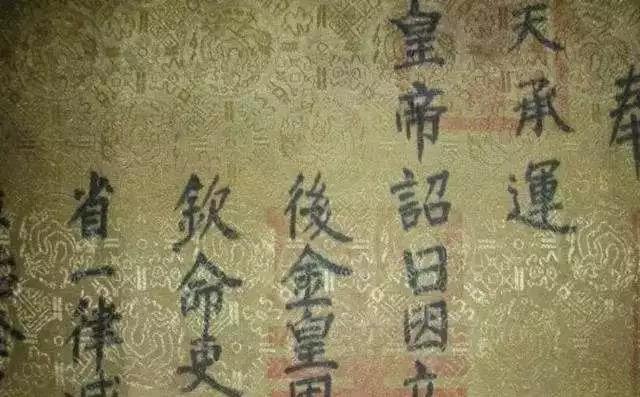 奉
天承運
皇帝詔曰因立
後金皇
欽命吏
省一律